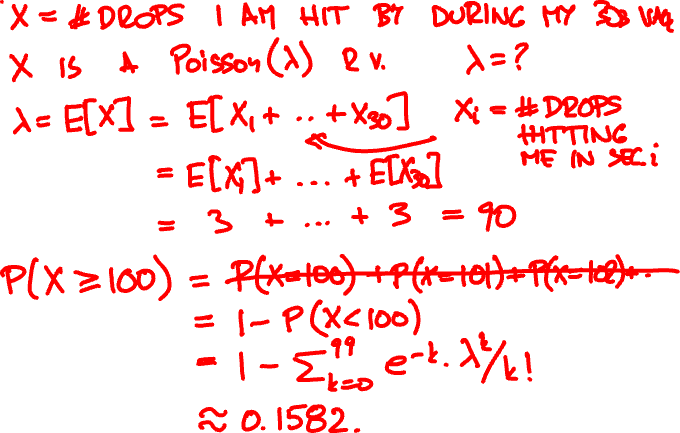 X = # DROPS I AM HIT BY DURING MY 30s WALK
X IS A Poisson(λ) R.V. λ = ?
λ = E[X] = E[X₁ + .. + X₃₀] Xᵢ = # DROPS
HITTING
ME IN SEC. i
= E[X₁] + ... + E[X₃₀]
= 3 + ... + 3 = 90
P(X ≥ 100) = P(X=100) + P(X=101) + P(X=102) + ..
= 1 - P(X<100)
= 1 - Σ_{k=0}^{99} e^{-k} · λ^k/k!
≈ 0.1582.